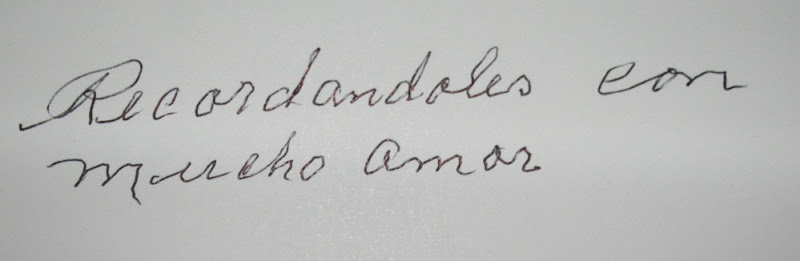 Recordandoles con
mucho amor